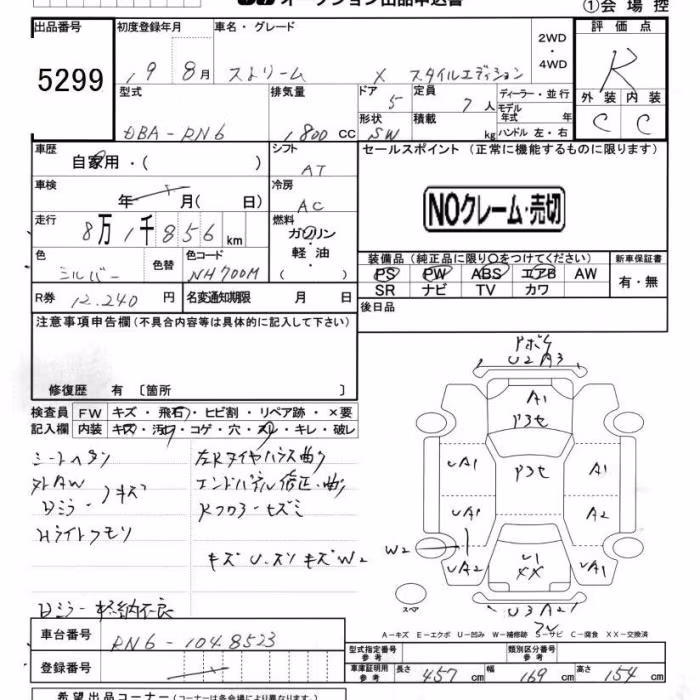 オークション出品申込書
①会場控
出品番号 初度登録年月 車名・グレード 2WD ・ 4WD 評価点
5299 19 8月 ストリーム X スタイルエディション R
型式 排気量 ドア 5 定員 7人 ディーラー・並行 外装 内装
DBA-RN6 1,800 CC 形状 SW 積載 kg モデル年式 年 ハンドル 左・右 C C
車歴 自家用・( ) シフト AT セールスポイント (正常に機能するものに限ります)
車検 年 月( 日) 冷房 AC
NOクレーム・売切
走行 8万1千856km 燃料 ガソリン ・ 軽油
色 シルバー 色替 色コード NH700M
装備品 (純正品に限り○をつけてください) 新車保証書
PS PW ABS エアB AW 有・無
SR ナビ TV カワ
R券 12,240円 名変通知期限 月 日 後日品
注意事項申告欄 (不具合内容等は具体的に記入して下さい)
修復歴 有 〔箇所 〕
検査員 FW キズ・飛石・ヒビ割・リペア跡・×要
記入欄 内装 キズ・汚れ・コゲ・穴・スレ・キレ・破レ
シートヘタリ
外AW
Dミラー キズ
Hライトクモリ
Dミラー格納不良
左Rタイヤハウス曲り
エンドパネル修正・曲り
Rフロアーヒズミ
キズ U・スリキズ W2
U2 A3
A1
UA1
A1
UA1
A2
W2
UA2
U1
XX
UA1
スペア
U3 A2
A-キズ E-エクボ U-凹み W-補修跡 S-サビ C-腐食 XX-交換済
車台番号 RN6-1048523
登録番号
型式指定番号 参考 類別区分番号 参考
車庫証明用 参考 長さ 457cm 幅 169cm 高さ 154cm
希望出品コーナー (コーナーは各会場により異なります)